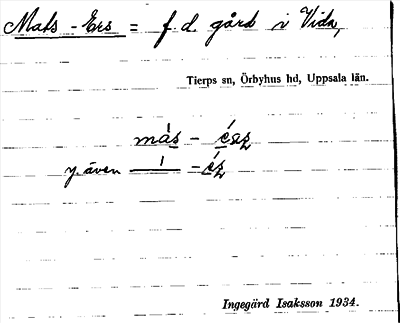 Mats - Ers = f. d. gård i Vida,
Tierps sn, Örbyhus hd, Uppsala län.
más -
y. även
Ingegärd Isaksson 1934.